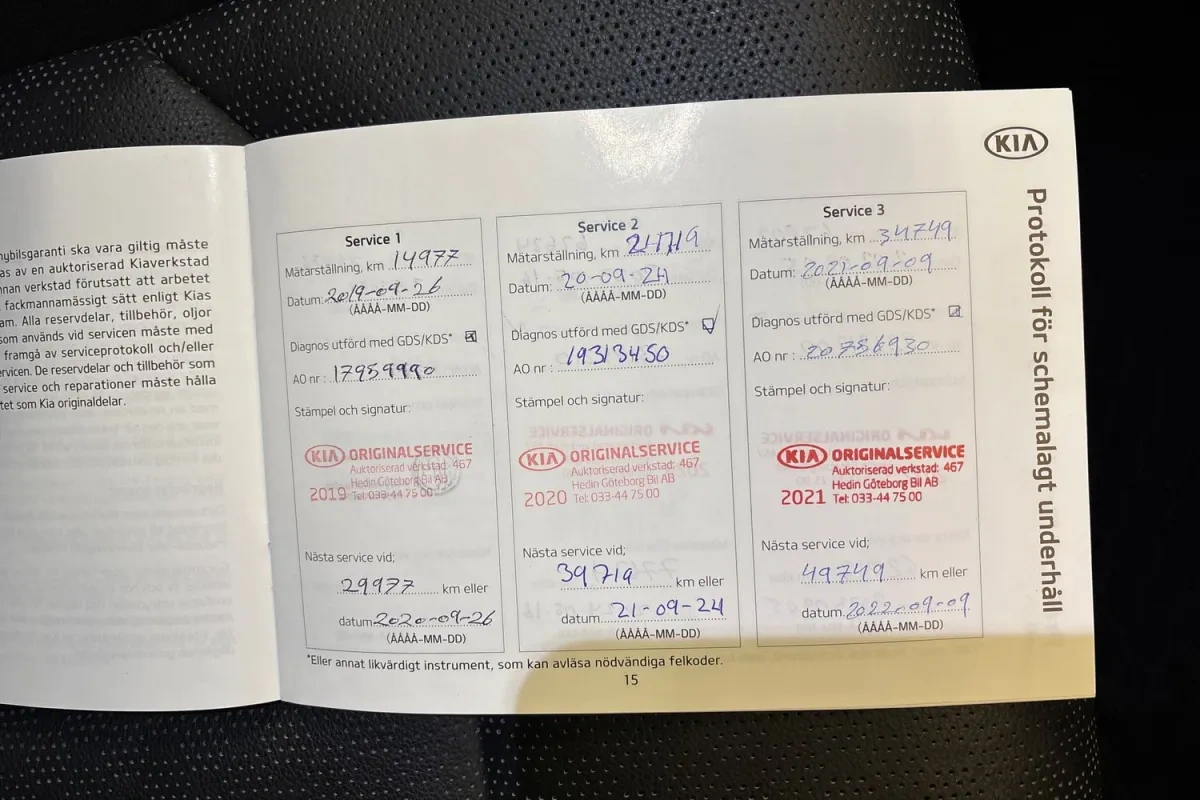 nybilsgaranti ska vara giltig måste
as av en auktoriserad Kiaverkstad
nnan verkstad förutsatt att arbetet
fackmannamässigt sätt enligt Kias
am. Alla reservdelar, tillbehör, oljor
som används vid servicen måste med
framgå av serviceprotokoll och/eller
ervicen. De reservdelar och tillbehör som
service och reparationer måste hålla
tet som Kia originaldelar.
KIA
Protokoll för schemalagt underhåll
Service 1
Mätarställning, km 14977
Datum: 2019-09-26
(ÅÅÅÅ-MM-DD)
Diagnos utförd med GDS/KDS*
AO nr : 17959990
Stämpel och signatur:
KIA ORIGINALSERVICE
Auktoriserad verkstad: 467
Hedin Göteborg Bil AB
2019 Tel: 033-44 75 00
Nästa service vid;
29977 km eller
datum 2020-09-26
(ÅÅÅÅ-MM-DD)
Service 2
Mätarställning, km 24719
Datum: 20-09-24
(ÅÅÅÅ-MM-DD)
Diagnos utförd med GDS/KDS*
AO nr : 19313450
Stämpel och signatur:
KIA ORIGINALSERVICE
Auktoriserad verkstad: 467
Hedin Göteborg Bil AB
2020 Tel: 033-44 75 00
Nästa service vid;
39719 km eller
datum 21-09-24
(ÅÅÅÅ-MM-DD)
Service 3
Mätarställning, km 34749
Datum: 2021-09-09
(ÅÅÅÅ-MM-DD)
Diagnos utförd med GDS/KDS*
AO nr : 20786930
Stämpel och signatur:
KIA ORIGINALSERVICE
Auktoriserad verkstad: 467
Hedin Göteborg Bil AB
2021 Tel: 033-44 75 00
Nästa service vid;
49749 km eller
datum 2022-09-09
(ÅÅÅÅ-MM-DD)
*Eller annat likvärdigt instrument, som kan avläsa nödvändiga felkoder.
15